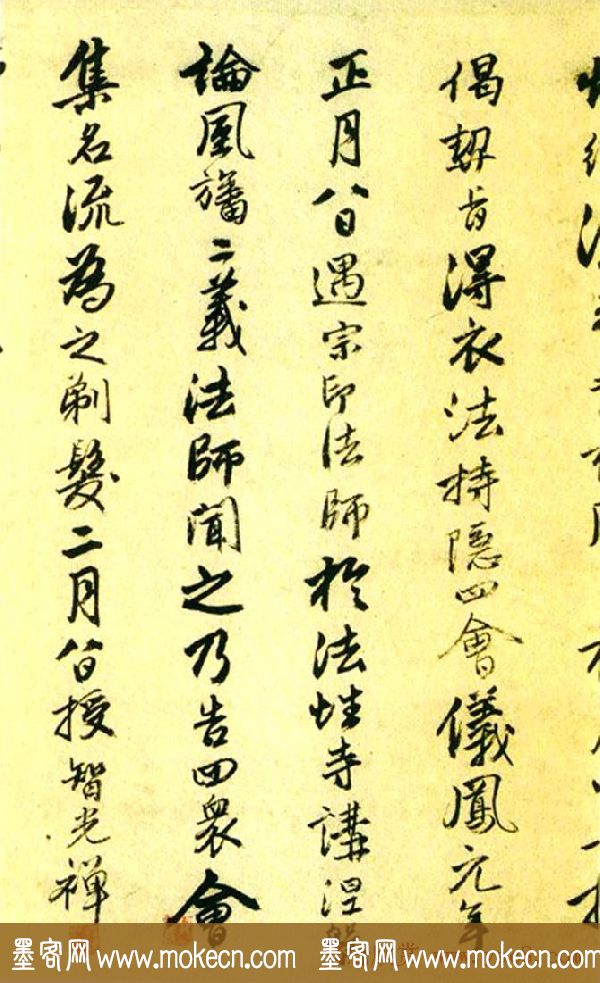 偈契旨得衣法持隱四會儀鳳元年
正月八日遇宗印法師於法性寺講涅槃
論風旛二義法師聞之乃告四衆會
集名流為之剃髮二月八日授智光禪
墨客网 www.mokecn.com 墨客网 www.mokecn.com